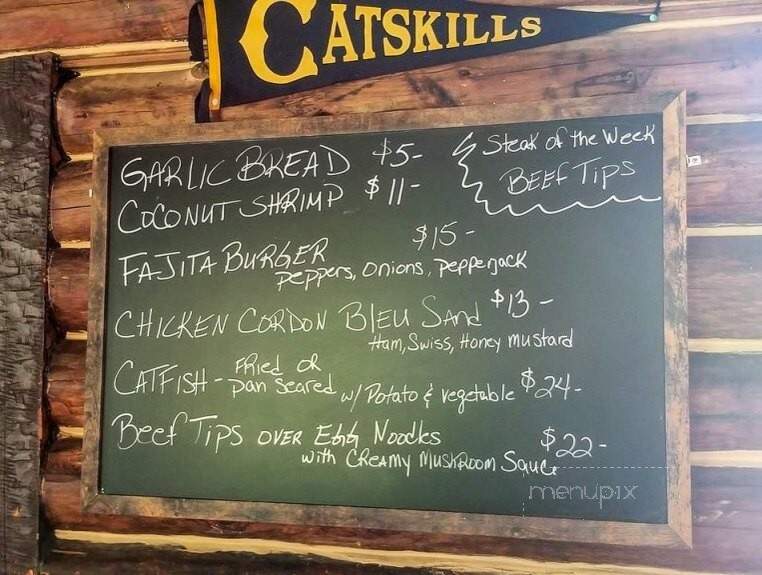 CATSKILLS
GARLIC BREAD $5-
COCONUT SHRIMP $11-
Steak of the Week
BEEF TIPS
FAJITA BURGER $15-
peppers, onions, pepperjack
CHICKEN CORDON BLEU SAND $13-
Ham, Swiss, Honey mustard
CATFISH - FRied OR
pan seared w/ Potato & vegetable $24-
Beef TIPS OVER EGG Noodles $22-
with CReamy MushRoom Sauce
menupix